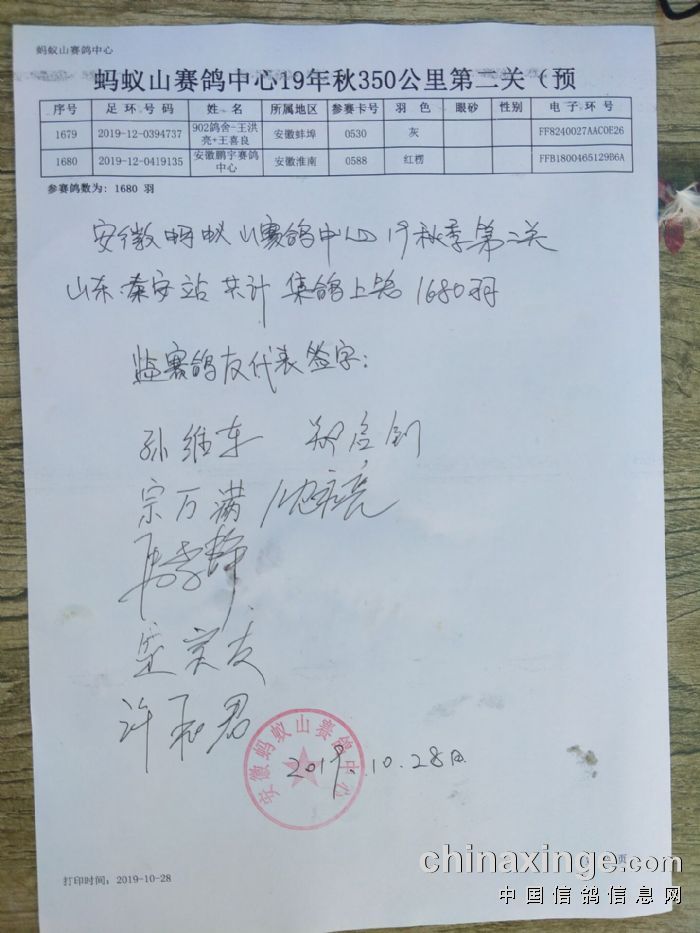 蚂蚁山赛鸽中心
蚂蚁山赛鸽中心19年秋350公里第二关（预
序号 足环号码 姓名 所属地区 参赛卡号 羽色 眼砂 性别 电子环号
1679 2019-12-0394737 902鸽舍-王洪亮+王喜良 安徽蚌埠 0530 灰 FF8240027AAC0E26
1680 2019-12-0419135 安徽鹏宇赛鸽中心 安徽淮南 0588 红楞 FFB1800465129B6A
参赛鸽数为：1680 羽
安徽蚂蚁山赛鸽中心19秋季第二关
山东·泰安站 共计 集鸽上笼 1680羽
监赛鸽友代表签字：
孙维东
宗万满
安徽蚂蚁山赛鸽中心
2019.10.28日
页
打印时间：2019-10-28
chinaxinge.com
中国信鸽信息网